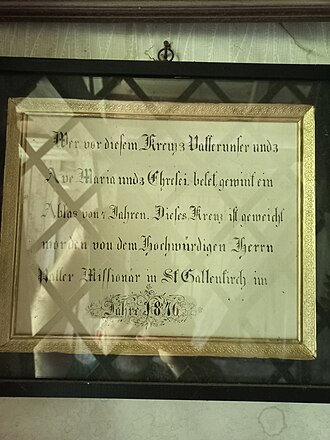 Wer vor diesem Kreuz 3 Vatterunser und 3
Ave Maria und 3 Ehrsei. betet gewint ein
Ablas von 7 Jahren. Dieses Kreuz ist geweicht
worden von dem Hochwürdigen Herrn
Patter Missionar in St Gallenkirch im
Jahre 1876